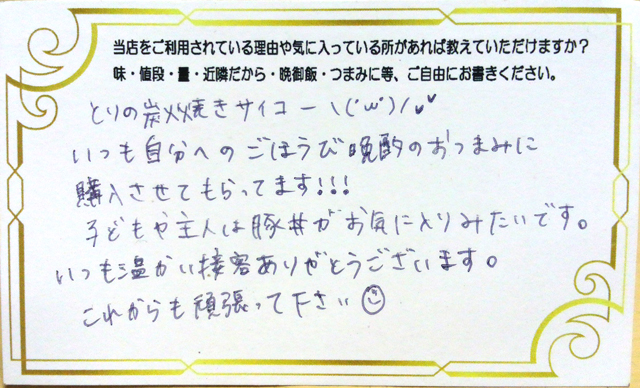 当店をご利用されている理由や気に入っている所があれば教えていただけますか？
味・値段・量・近隣だから・晩御飯・つまみに等、ご自由にお書きください。
とりの炭火焼きサイコー \(´ω`)/♥♥
いつも自分へのごほうび晩酌のおつまみに
購入させてもらってます!!!
子どもや主人は豚丼がお気に入りみたいです。
いつも温かい接客ありがとうございます。
これからも頑張って下さい☺